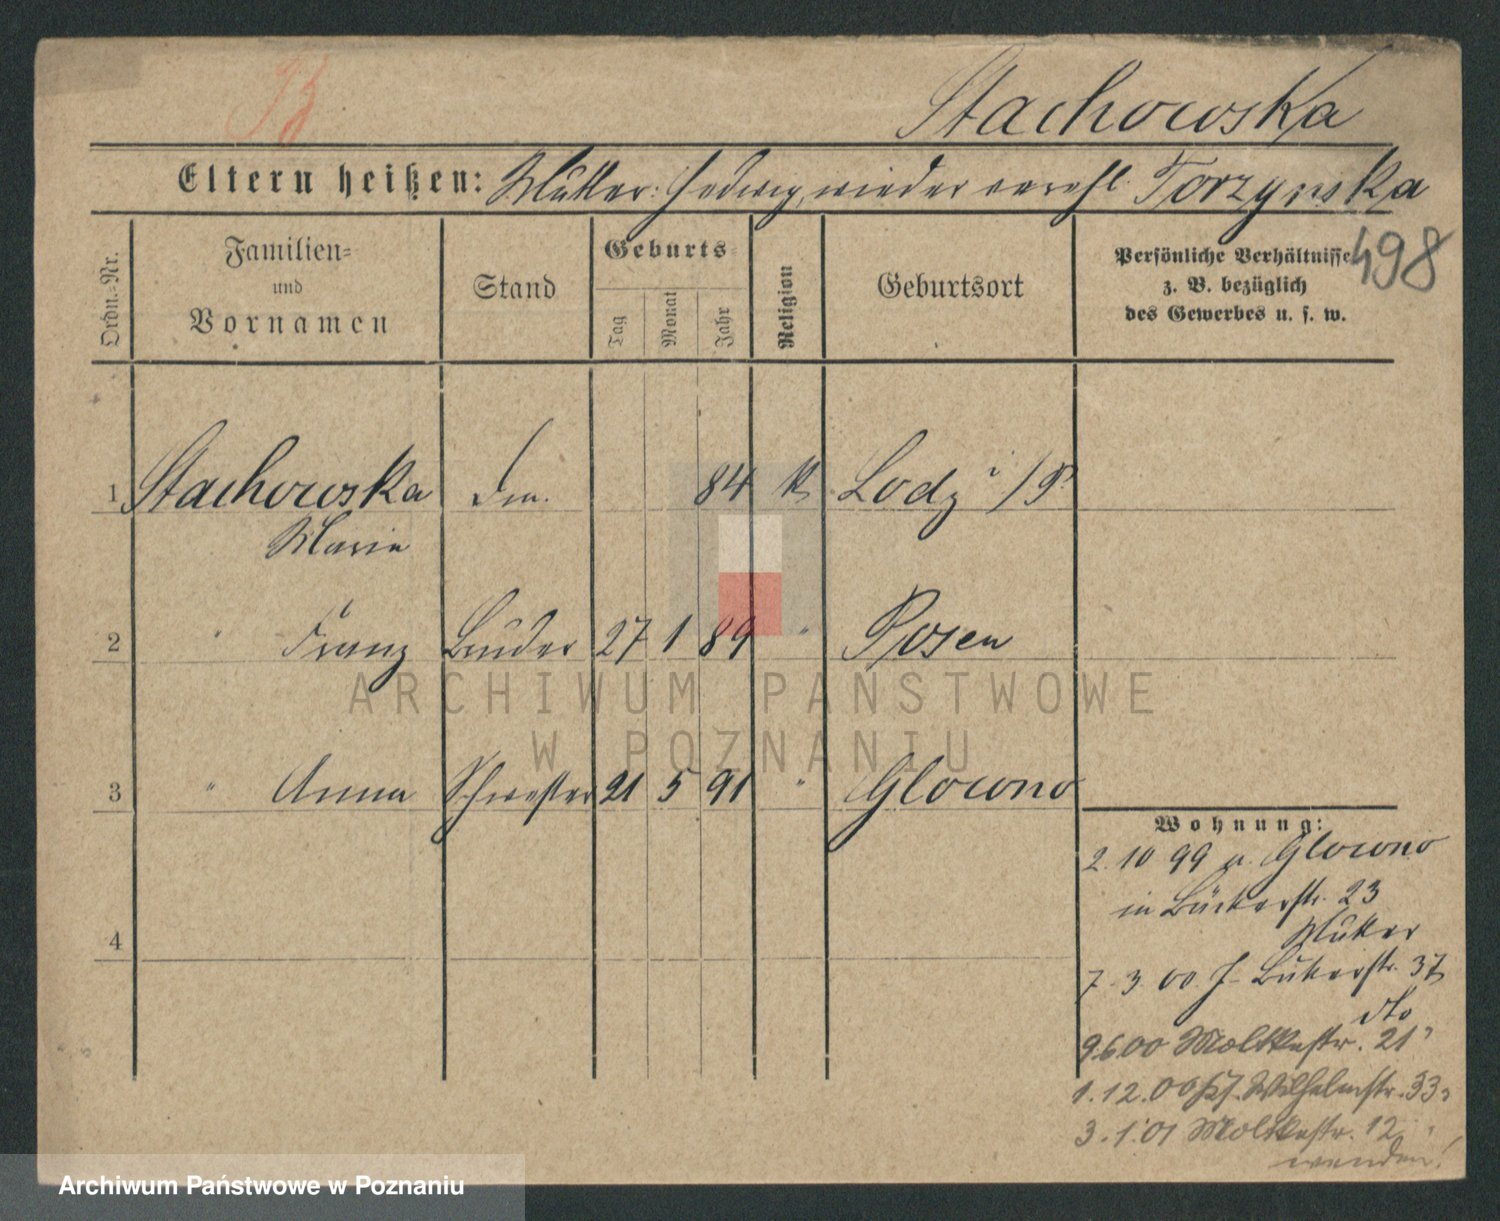 Stachowska
Eltern heißen: Mutter: Hedwig, wieder verehl. Torzynska
498
Ordn.-Nr. Familien- und Vornamen Stand Geburts- Tag Monat Jahr Religion Geburtsort Persönliche Verhältnisse z. B. bezüglich des Gewerbes u. s. w.
1 Stachowska 84 k Lodz i/P
Marie
2 " Franz Bruder 27 1 89 " Posen
3 " Anna Schwester 21 5 91 " Glowno
4
Wohnung:
2. 10 99 v. Glowno
in Bäckerstr. 23
Mutter
7. 3. 00 Bäckerstr. 37
dto
9.6.00 Moltkestr. 21
1.12.00 Wilhelmstr. 33
3.1.01 Moltkestr. 12
wenden!
ARCHIWUM PAŃSTWOWE
W POZNANIU
Archiwum Państwowe w Poznaniu